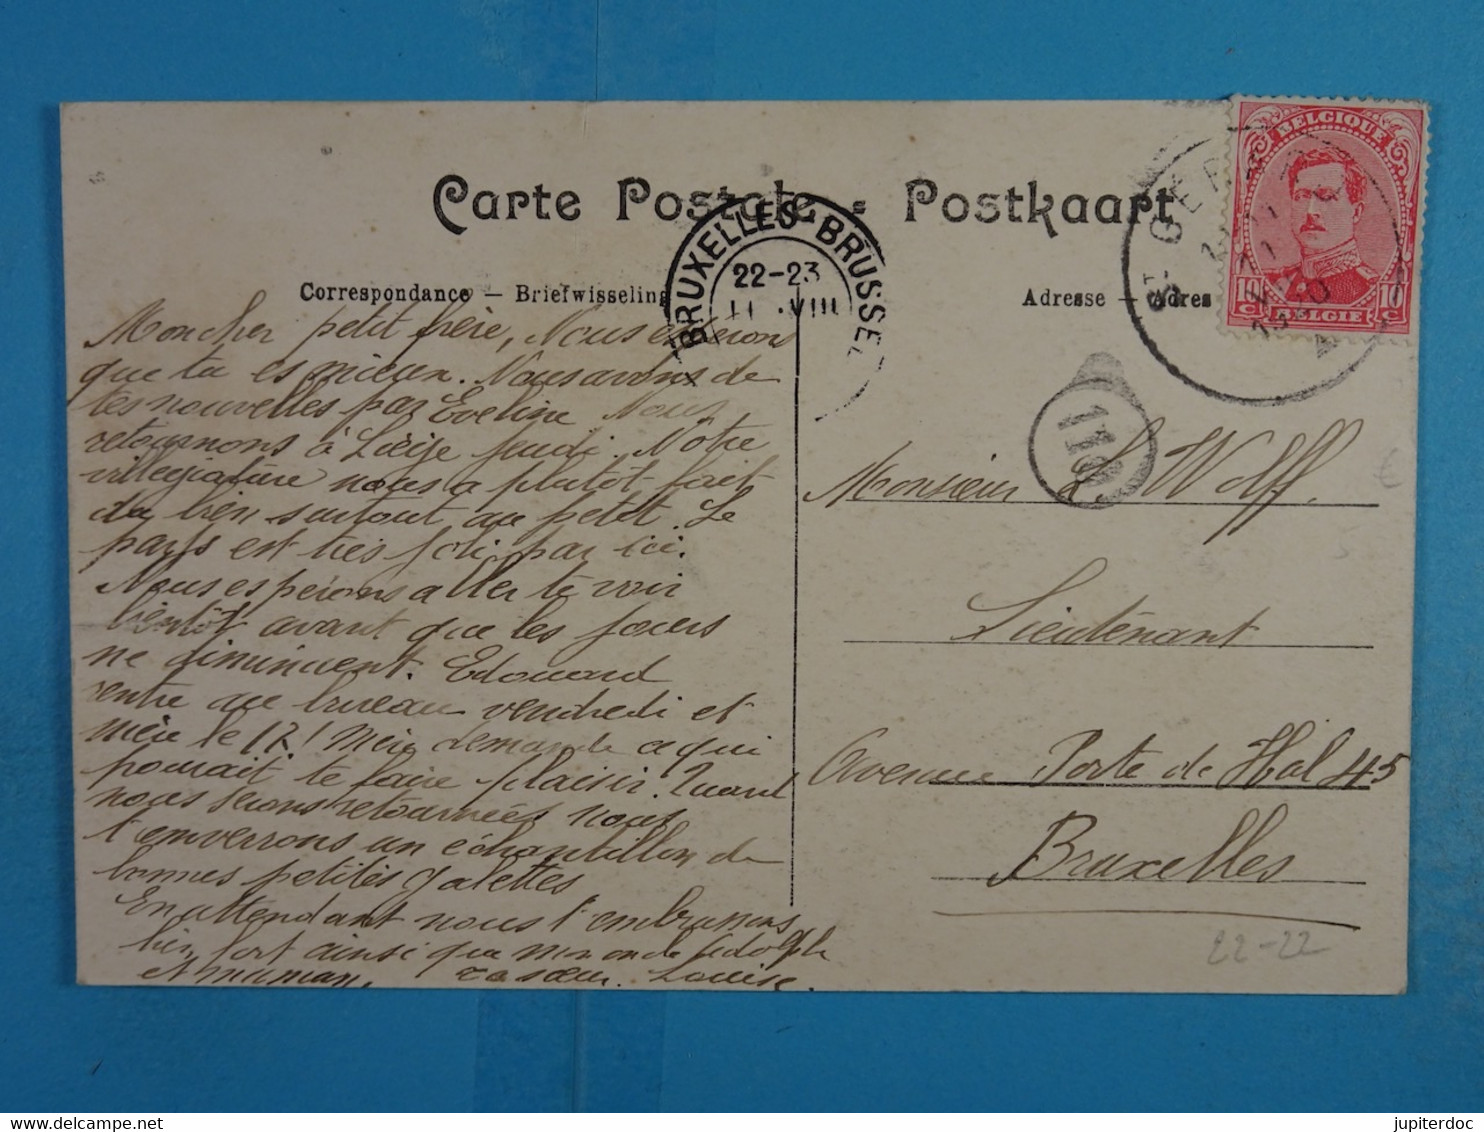 Carte Postale - Postkaart
Correspondance — Briefwisseling
Adresse — Adres
BRUXELLES-BRUSSEL
22-23
VIII
BELGIQUE
10 C BELGIE 10 C
ST GÉR
118
Mon cher petit frère, Nous espérons
que tu es mieux. Nous avons de
tes nouvelles par Eveline Nous
retournons à Liège jeudi. Notre
villegiature nous a plutôt fait
du bien surtout au petit. Le
pays est très joli par ici.
Nous espérons aller te voir
bientôt avant que les jours
ne diminuent. Edouard
rentre au bureau vendredi et
mère le 17! Mère demande ce qui
pourrait te faire plaisir. Quand
nous serons retournées nous
t'enverrons un échantillon de
bonnes petites galettes
En attendant nous t'embrassons
bien fort ainsi que Adolph
ta soeur. Louise.
Monsieur L. Wolff.
Lieutenant
Avenue Porte de Hal 45
Bruxelles
22-22
€
jupiterdoc